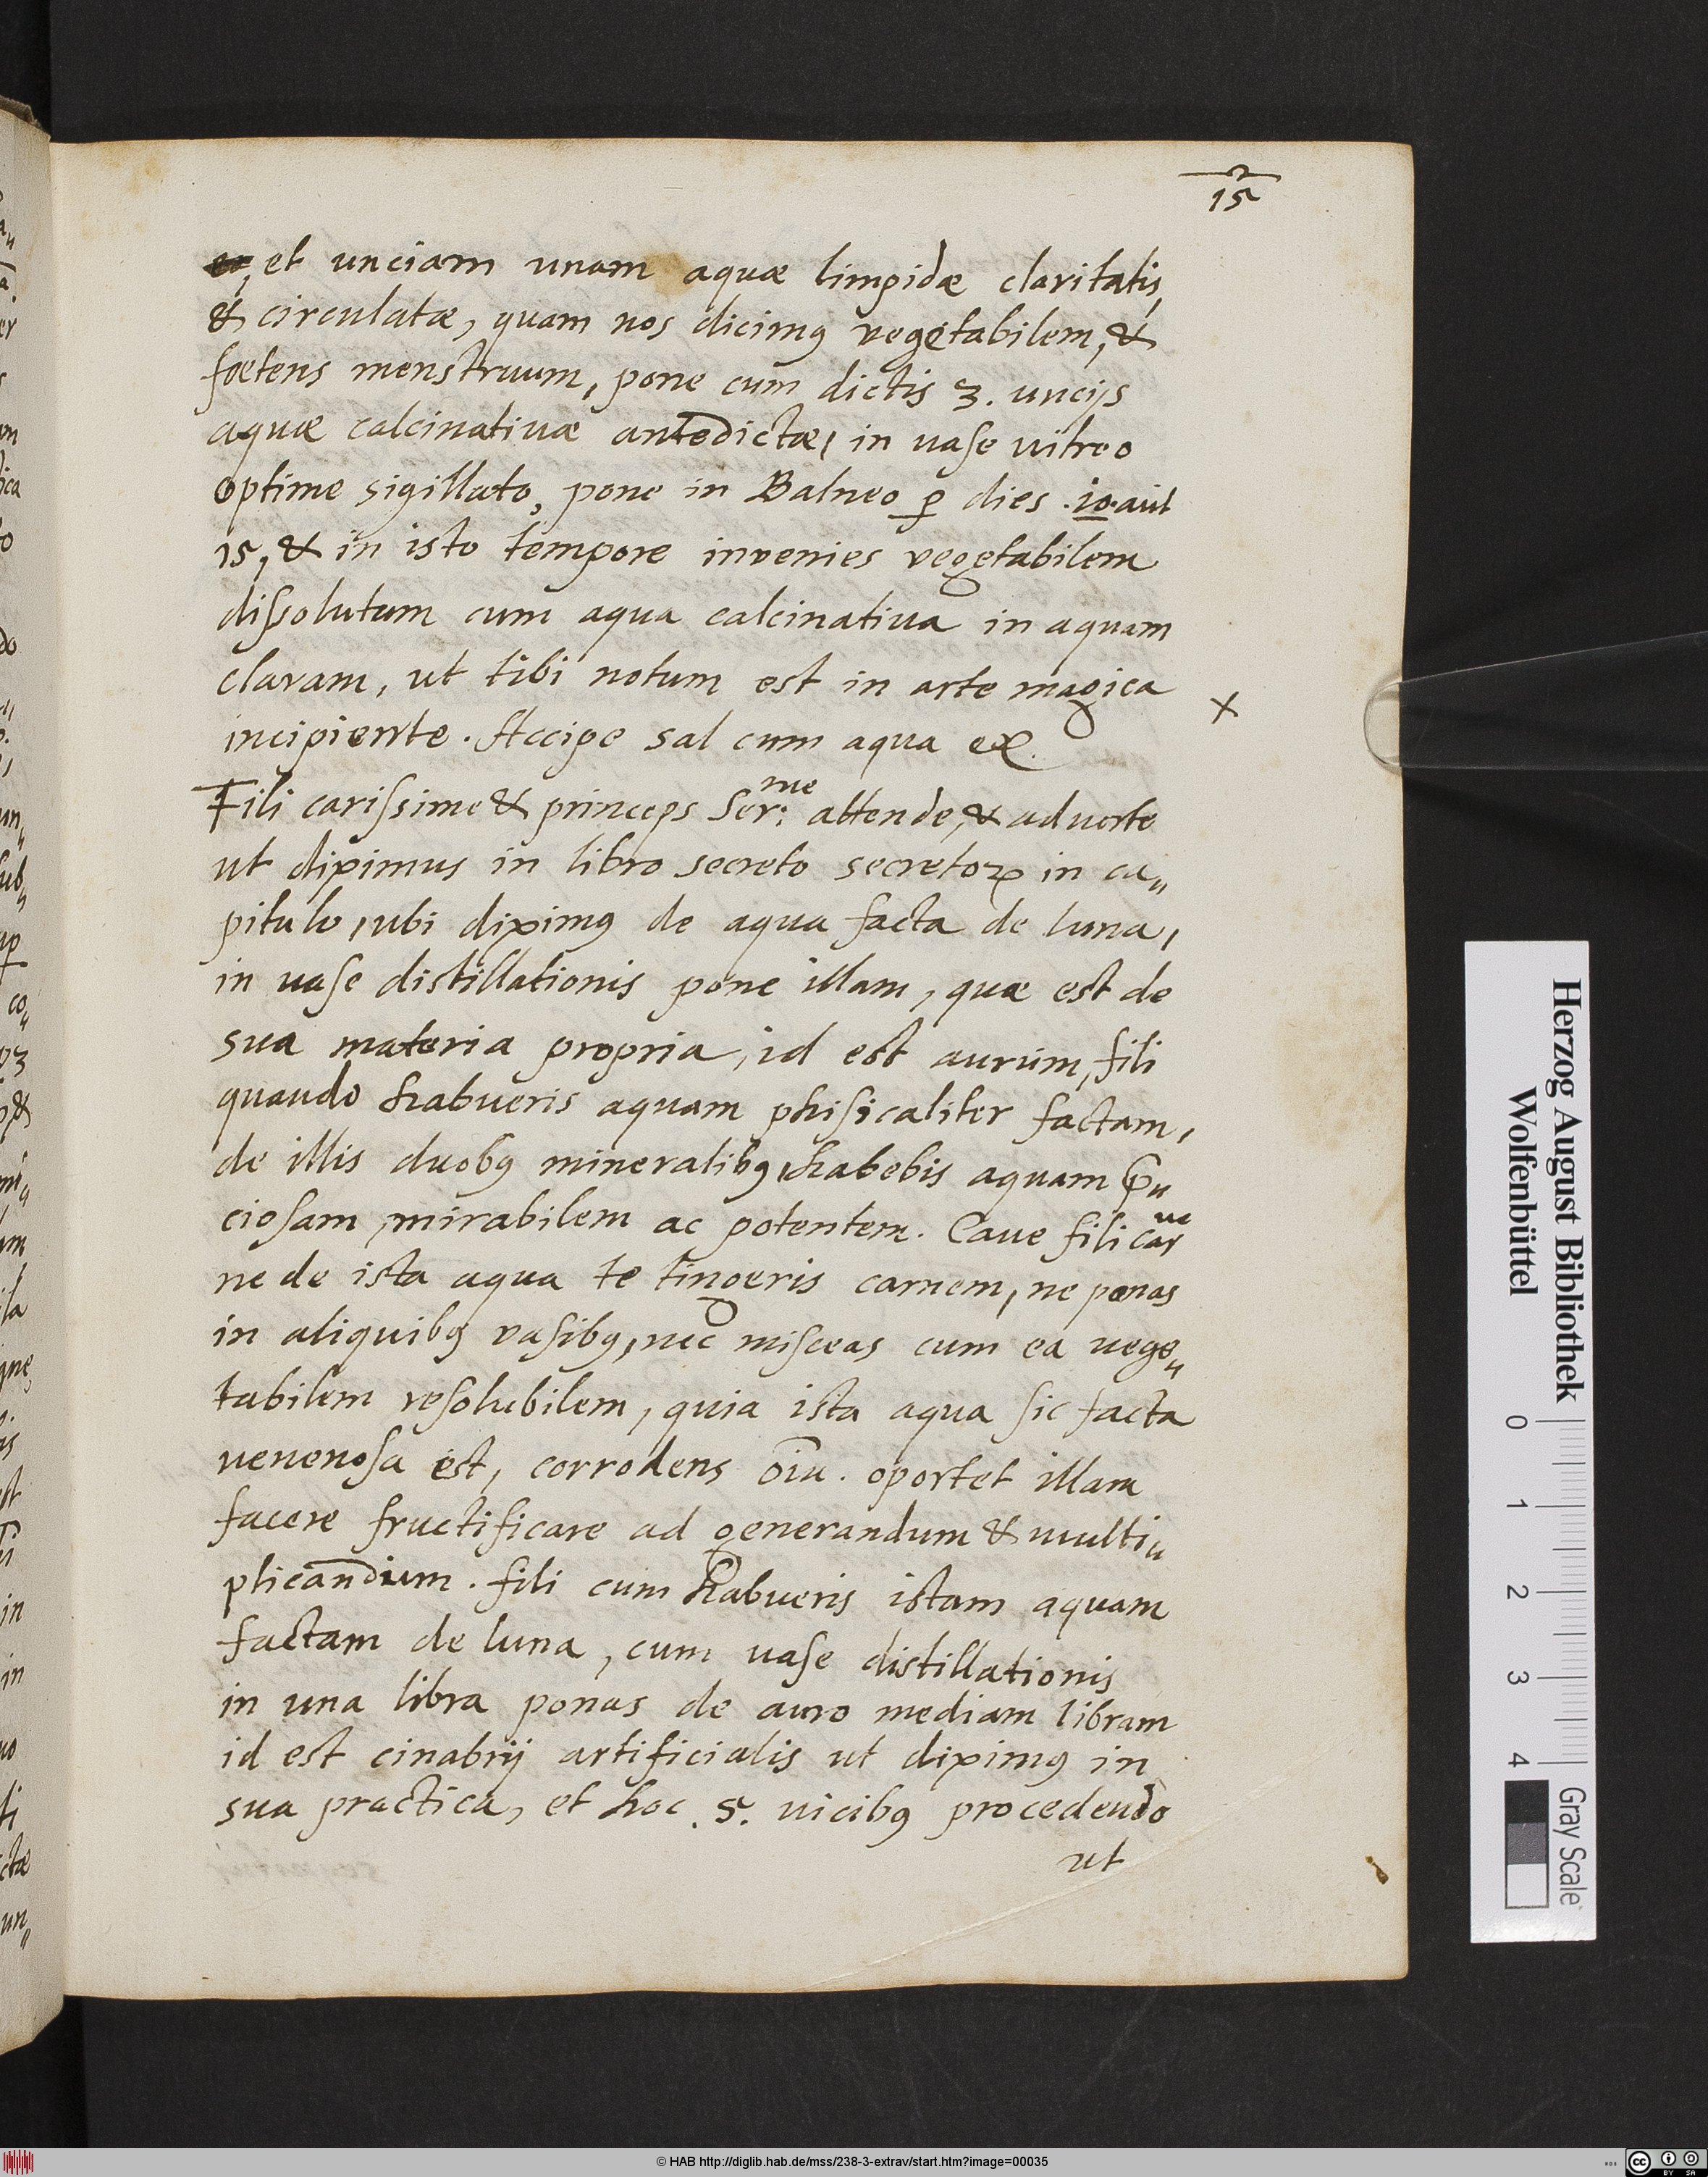 15
et unciam unam aquæ limpidæ claritatis,
& circulatæ, quam nos dicimꝰ vegetabilem, &
fœtens menstruum, pone cum dictis 3. uncijs
aquæ calcinatiuæ antedictæ, in uase uitreo
optime sigillato, pone in Balneo ꝑ dies .10. aut
15, & in isto tempore invenies vegetabilem
dissolutum cum aqua calcinatiua in aquam
claram, ut tibi notum est in arte magica
incipiente. Accipe sal cum aqua ex.
Fili carissime & princeps Ser:me attende, & aduerte
ut diximus in libro secreto secretoꝝ in ca„
pitulo, ubi diximꝰ de aqua facta de luna,
in uase distillationis pone illam, quæ est de
sua materia propria, id est aurum, fili
quando habueris aquam phisicaliter factam,
de illis duobꝰ mineralibꝰ, habebis aquam p̄„
ciosam, mirabilem ac potentem. Caue fili car
ne de ista aqua te tingeris carnem, ne ponas
in aliquibꝰ vasibꝰ, nec misceas cum ea uege„
tabilem resolubilem, quia ista aqua sic facta
uenenosa est, corrodens oīa. oportet illam
facere fructificare ad generandum & multi„
plicandum. fili cum habueris istam aquam
factam de luna, cum uase distillationis
in una libra ponas de auro mediam libram
id est cinabrij artificialis ut diximꝰ in
sua practica, et hoc .5. uicibꝰ procedendo
ut
Herzog August Bibliothek
Wolfenbüttel
0 1 2 3 4
Gray Scale
© HAB http://diglib.hab.de/mss/238-3-extrav/start.htm?image=00035
cc BY SA